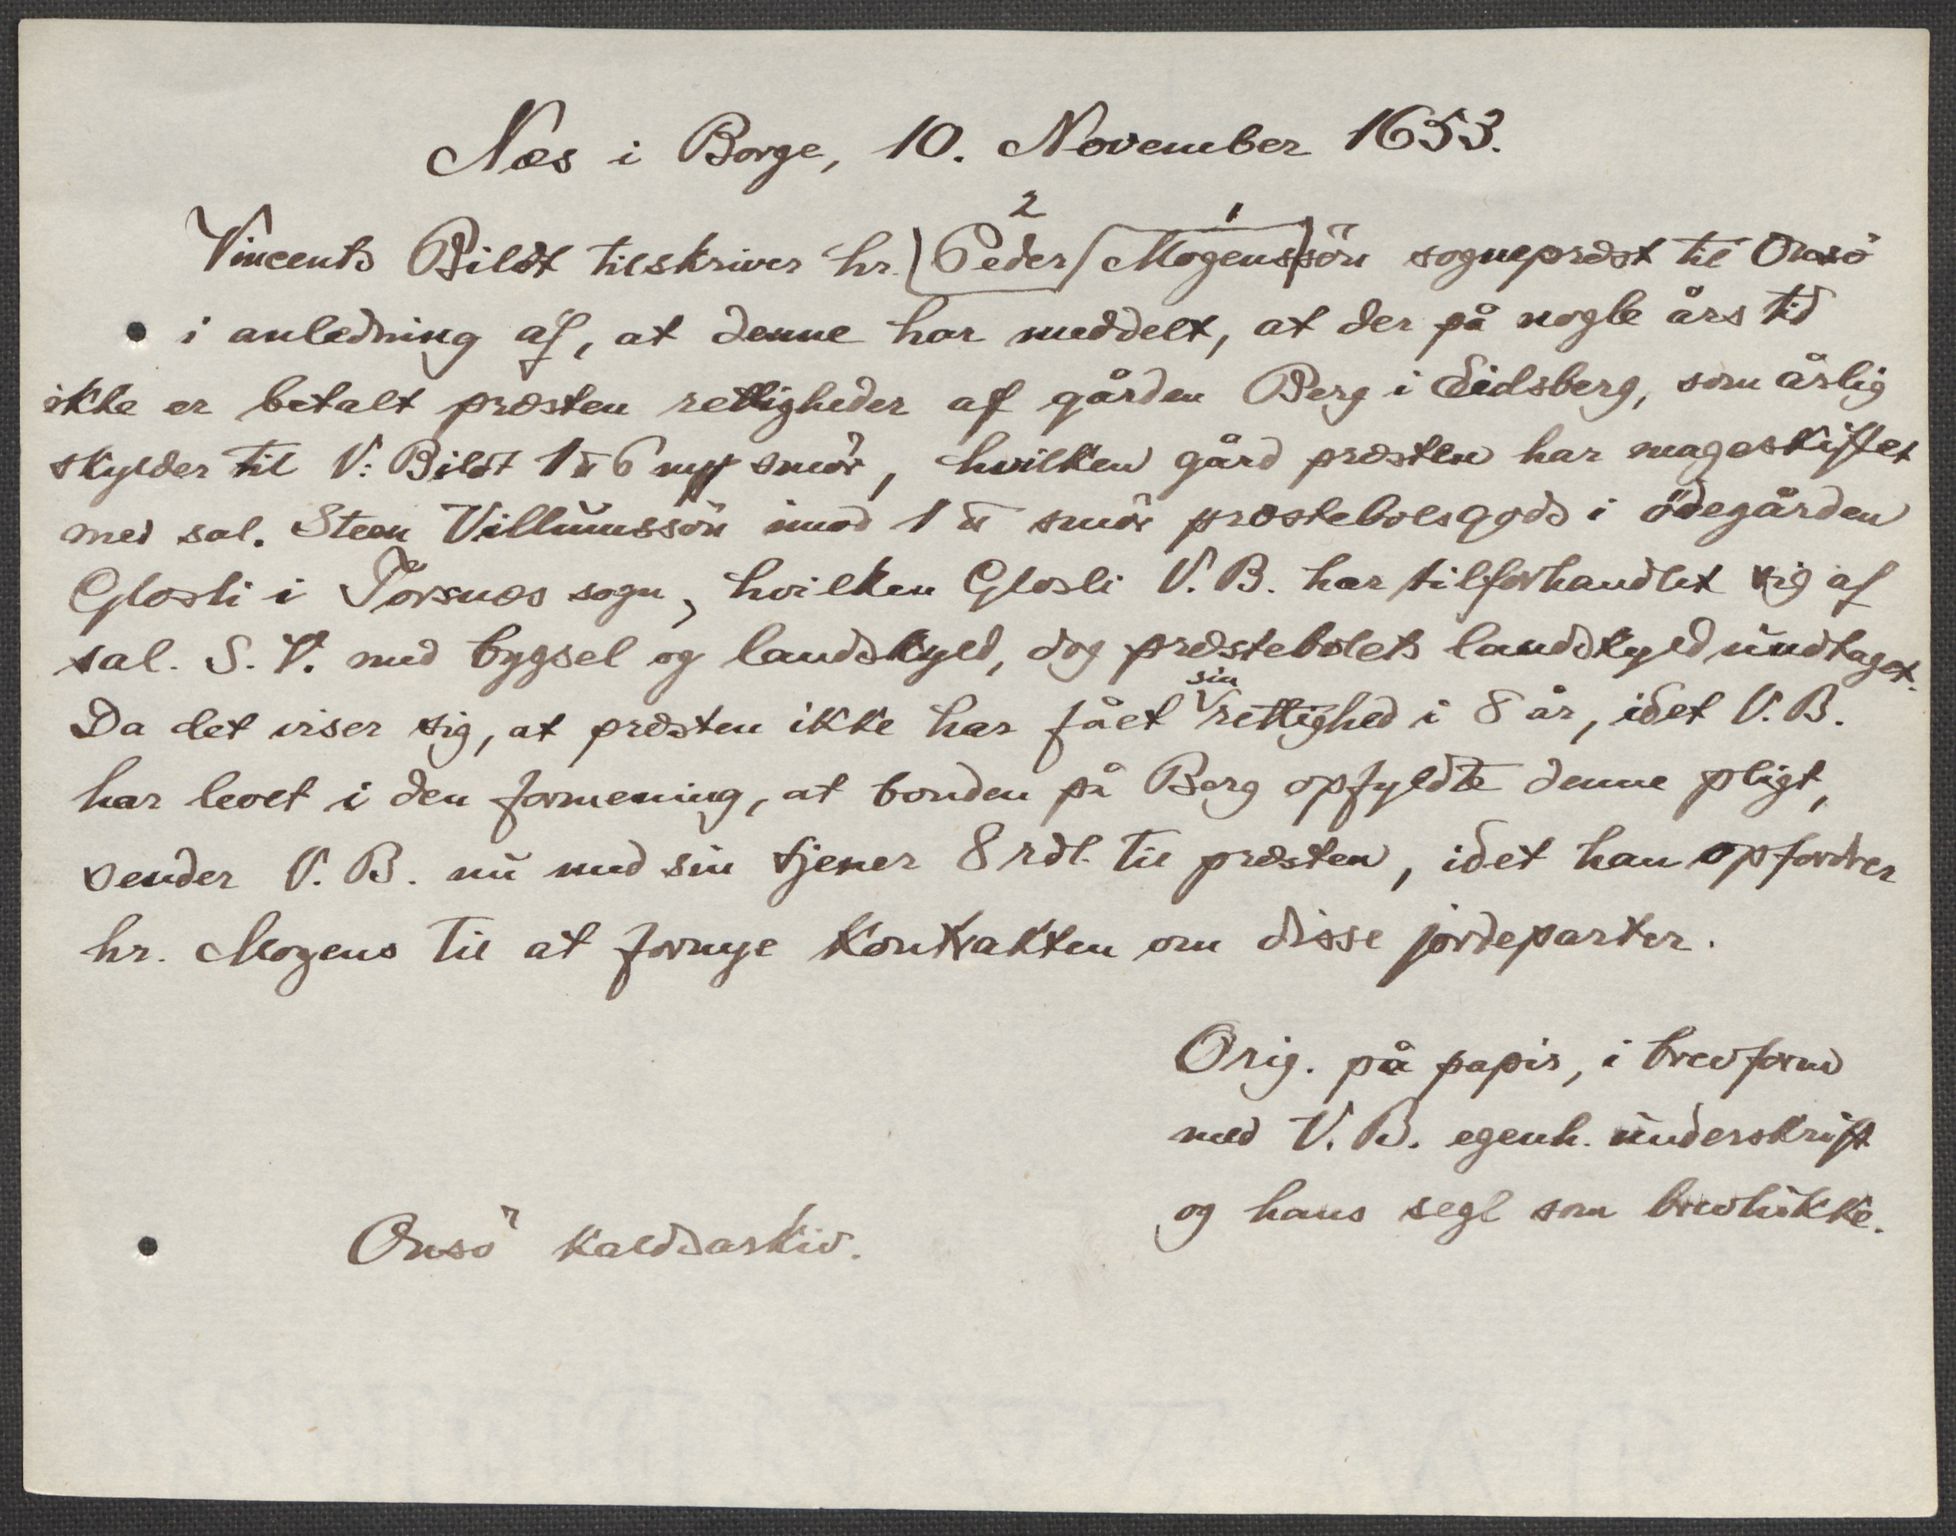 Næs i Borge, 10. November 1653.
2 1
Vincents Bildt tilskriver hr. Peder Mogenssön sogneprest til Onsö
i anledning af, at denne har meddelt, at der på nogle års tid
ikke er betalt præsten rettigheder af gården Berg i Eidsberg, som årlig
skylder til V: Bildt 1 ℔ 6 mrk smör, hvilken gård præsten har mageskiftet
med sal. Steen Villumssön imod 1 ℔ smör præstebolsgods i ödegården
Glosli i Torsnæs sogn, hvilken Glosli V. B. har tilforhandlet sig af
sal. S. V. med bygsel og landskyld, dog præstebolets landskyld undtaget.
sin
Da det viser sig, at præsten ikke har fået rettighed i 8 år, idet V. B.
har levet i den formening, at bonden på Berg opfyldte denne pligt,
sender V. B. nu med sin tjener 8 rdl. til præsten, idet han opfordrer
hr. Mogens til at fornye kontrakten om disse jordeparter.
Orig. på papir, i brevform
med V. B. egenh. underskrift
og hans segl som brevlukke.
Onsö kaldsarkiv.